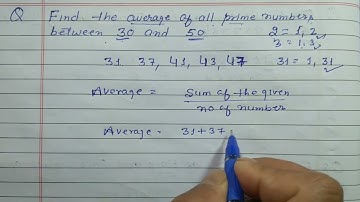 Q Find the average of all prime numbers
between 30 and 50
2 = 1, 2
3 = 1, 3
31 37, 41, 43, 47
31 = 1, 31
Average = Sum of the given
no of number
Average = 31+37+